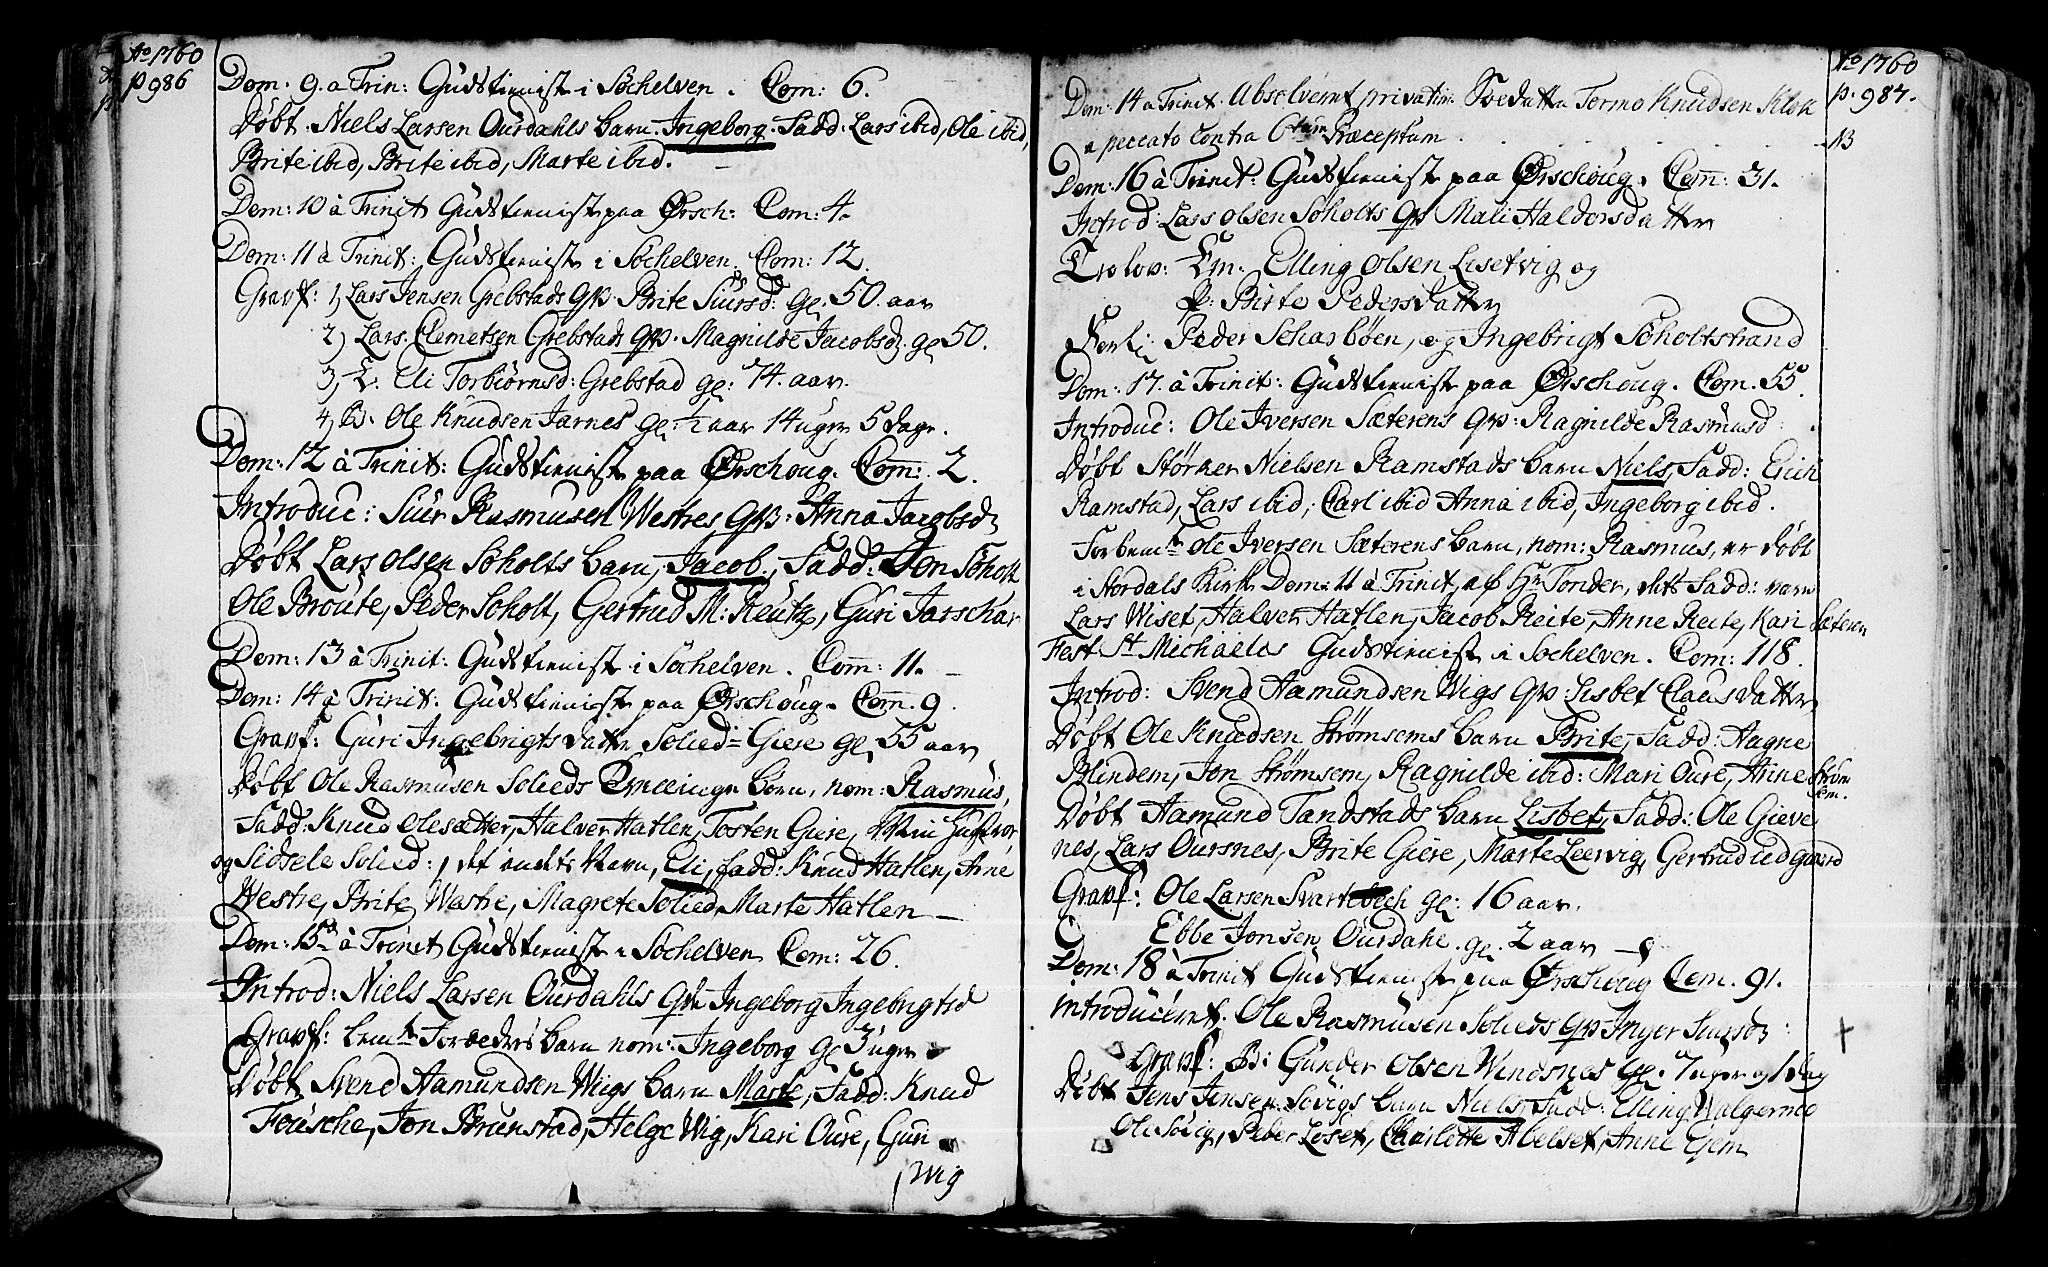 Ao 1760
p 986
Dom: 9. a Trin: Gudstienist i Söchelven. Com: 6.
Døbt. Niels Larsen Ourdahls barn. Ingeborg. Fadd: Lars ibid, Ole ibid,
Brite ibid, Brite ibid, Marte ibid.
Dom: 10 à Trinit Gudstienist paa Ørsch: Com: 4.
Dom: 11 à Trinit: Gudstienist i Söchelven. Com: 12.
Grapf: 1, Lars Jensen Grebstads qvs. Brite Siursd: gl. 50. aar
2, Lars Clemetsen Grebstads qvs. Magnilde Jacobsd. gl 50.
3, E. Eli Torbiörnsd: Grebstad gl: 74. aar.
4, B. Ole Knudsen Jarnes gl: 1/2 aar 14 uger 5 dage.
Dom: 12 à Trinit: Gudstienist paa Ørschoug. Com: 2.
Introduc: Siur Rasmusen Westres qvs: Anna Jacobsd
Døbt Lars Olsen Søholts barn, Jacob, Fadd: Jon Søholt
Ole Broute, Peder Soholt, Gertrud M: Reutz, Guri Jarschar
Dom: 13 à Trinit: Gudstienist i Söchelven. Com: 11.
Dom: 14 à Trinit: Gudstienist paa Ørschoug. Com: 9.
Grapf: Guri Ingebrigtsdatter Solied-Giere gl 55 aar
Døbt Ole Rasmusen Solieds Tvillinge børn, nom: Rasmus,
Fadd: Knud Olesætter, Halver Hatlen, Tosten Giere,
og Sidsele Solied: det andets Navn, Eli, fadd: Knud Hatlen, Arne
Westre, Brite Westre, Magrete Solied, Marte Hatlen
Dom: 15 à Trinit Gudstienist i Söchelven Com: 26.
Introd: Niels Larsen Ourdahls qvs Ingeborg Ingebrigtsd
Grapf: bemte Foræders barn nom: Ingeborg gl 3 uger
Døbt Svend Aamundsen Wigs barn Marte, Fadd: Knud
Fousche, Jon Brunstad, Helge Wig, Kari Oure, Guri
Wig
Ao 1760
p. 987.
Dom: 14 a Trinit. Absolveret privatim Soedatter Tormo Knudsen Klok
a peccato contra 6tum Præceptum
Dom: 16 à Trinit: Gudstienist paa Ørschoug. Com: 31.
Introd: Lars Olsen Soholts qvs Mali Haldorsdatter
Trolov: Em: Elling Olsen Lisetvig og
P: Birte Pedersdatter
Forl: Peder Sehasbøen, og Ingebrigt Søholtstrand
Dom: 17. à Trinit: Gudstienist paa Ørschoug. Com. 55.
Introduc: Ole Iversen Sæterens qvs: Ragnilde Rasmusd:
Døbt Størker Nielsen Ramstads barn Niels, Fadd: Erich
Ramstad, Lars ibid, Carl ibid Anna ibid, Ingeborg ibid.
Forbemte Ole Iversen Sæterens barn, nom: Rasmus, er døbt
i Stordals Kirke Dom: 11 à Trinit, af Hr Tønder, dets Fadd: vare
Lars Wiset, Halver Hatlen, Jacob Reite, Anne Reite, Kari Sæteren
Fest St Michaelis Gudstienist i Sochelven. Com: 118.
Introd: Svend Aamundsen Wigs qvs: Lisbet Clausdatter
Døbt Ole Knudsen Strømsems barn Brite, Fadd: Aagne
Blindem, Jon Strømsem, Ragnilde ibid: Mari Oure, Anne Strømsem.
Døbt Aamund Tandstads barn Lisbet, Fadd: Ole Gievenes,
Lars Oursnes, Brite Giere, Marte Leervig, Gertrud Uedgaard
Grapf: Ole Larsen Svartebech gl: 16 aar.
Ebbe Jonsen Ourdahl. gl. 2 aar
Dom: 18 à Trinit Gudstienist paa Ørschoug Com. 91.
introduceret. Ole Rasmusen Solieds qvs Inger Siursd:
Grapf: B: Gunder Olsen Windsnes gl. 7 uger og 1 dag
Døbt Jens Jensen Søvigs barn Niels, Fadd: Elling Walgermo
Ole Søvig, Peder Liset, Charlotte Abelset, Anne Gjem